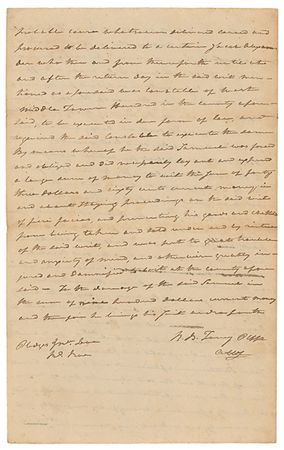 Probable cause whatsoever delivered caused and
procured to be delivered to a certain Jacob Alexan-
der who then and from thenceforth until
and after the return day in the said writ men-
tioned as aforesaid was constable of
Middle Town Hundred in the county afore-
said, to be executed in due form of law, and
required the said Constable to execute the same
By means whereof he the said Samuel was forced
and obliged and did necessarily lay out and expend
a large sum of money to wit the sum of forty
three dollars and sixty cents current money, in
and about staying proceedings on the said writ
of fieri facias, and preventing his goods and chattels
from being taken and sold under and by virtue
of the said writ, and was put to great trouble
and anxiety of mind, and otherwise greatly in-
jured and damnified to wit at the county afore
said — To the damage of the said Samuel in
the sum of nine hundred dollars current money
and therefore he brings his suit and so forth
Pledges &c John Doe
Rd. Roe
R. B. Taney Plffs
Atty